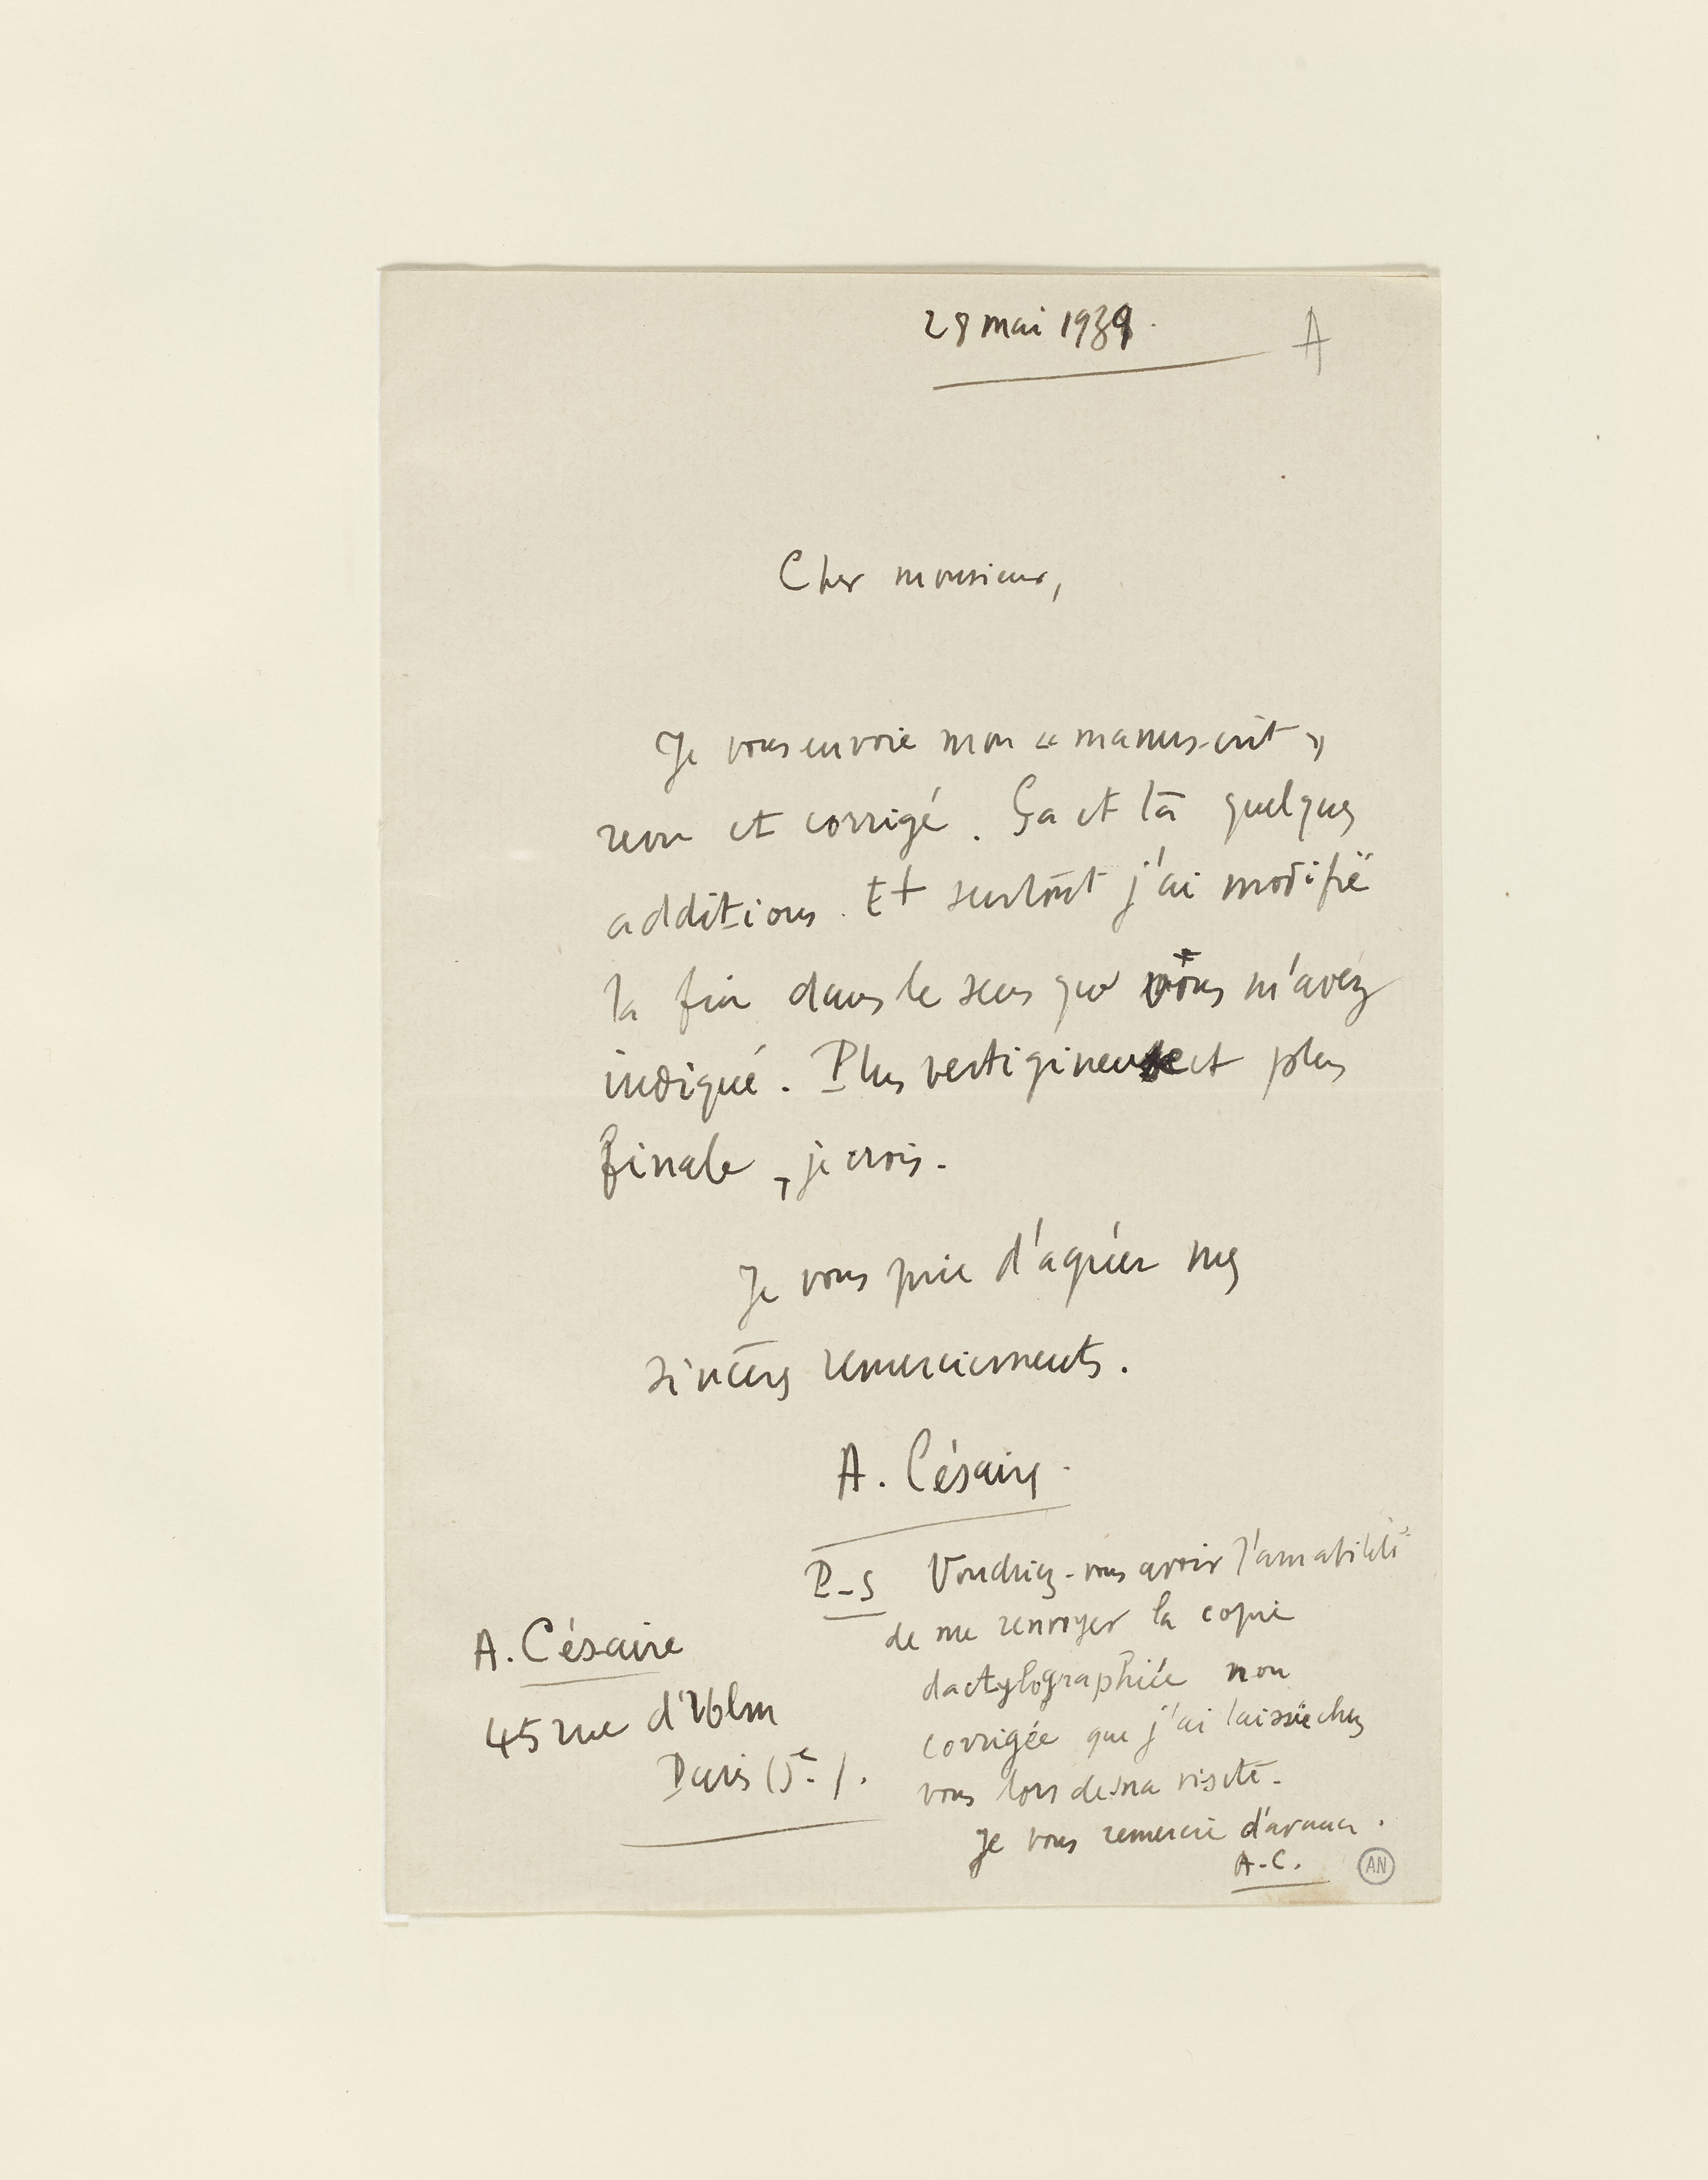 28 mai 1939.
A
Cher monsieur,
Je vous envoie mon « manuscrit »
revu et corrigé. Çà et là quelques
additions. Et surtout j'ai modifié
la fin dans le sens que vous m'avez
indiqué. Plus vertigineuse et plus
finale, je crois.
Je vous prie d'agréer mes
sincères remerciements.
A. Césaire.
P-S Voudriez-vous avoir l'amabilité
de me renvoyer la copie
dactylographiée non
corrigée que j'ai laissée chez
vous lors de ma visite.
Je vous remercie d'avance.
A-C.
A. Césaire
45 rue d'Ulm
Paris (5e.).
AN